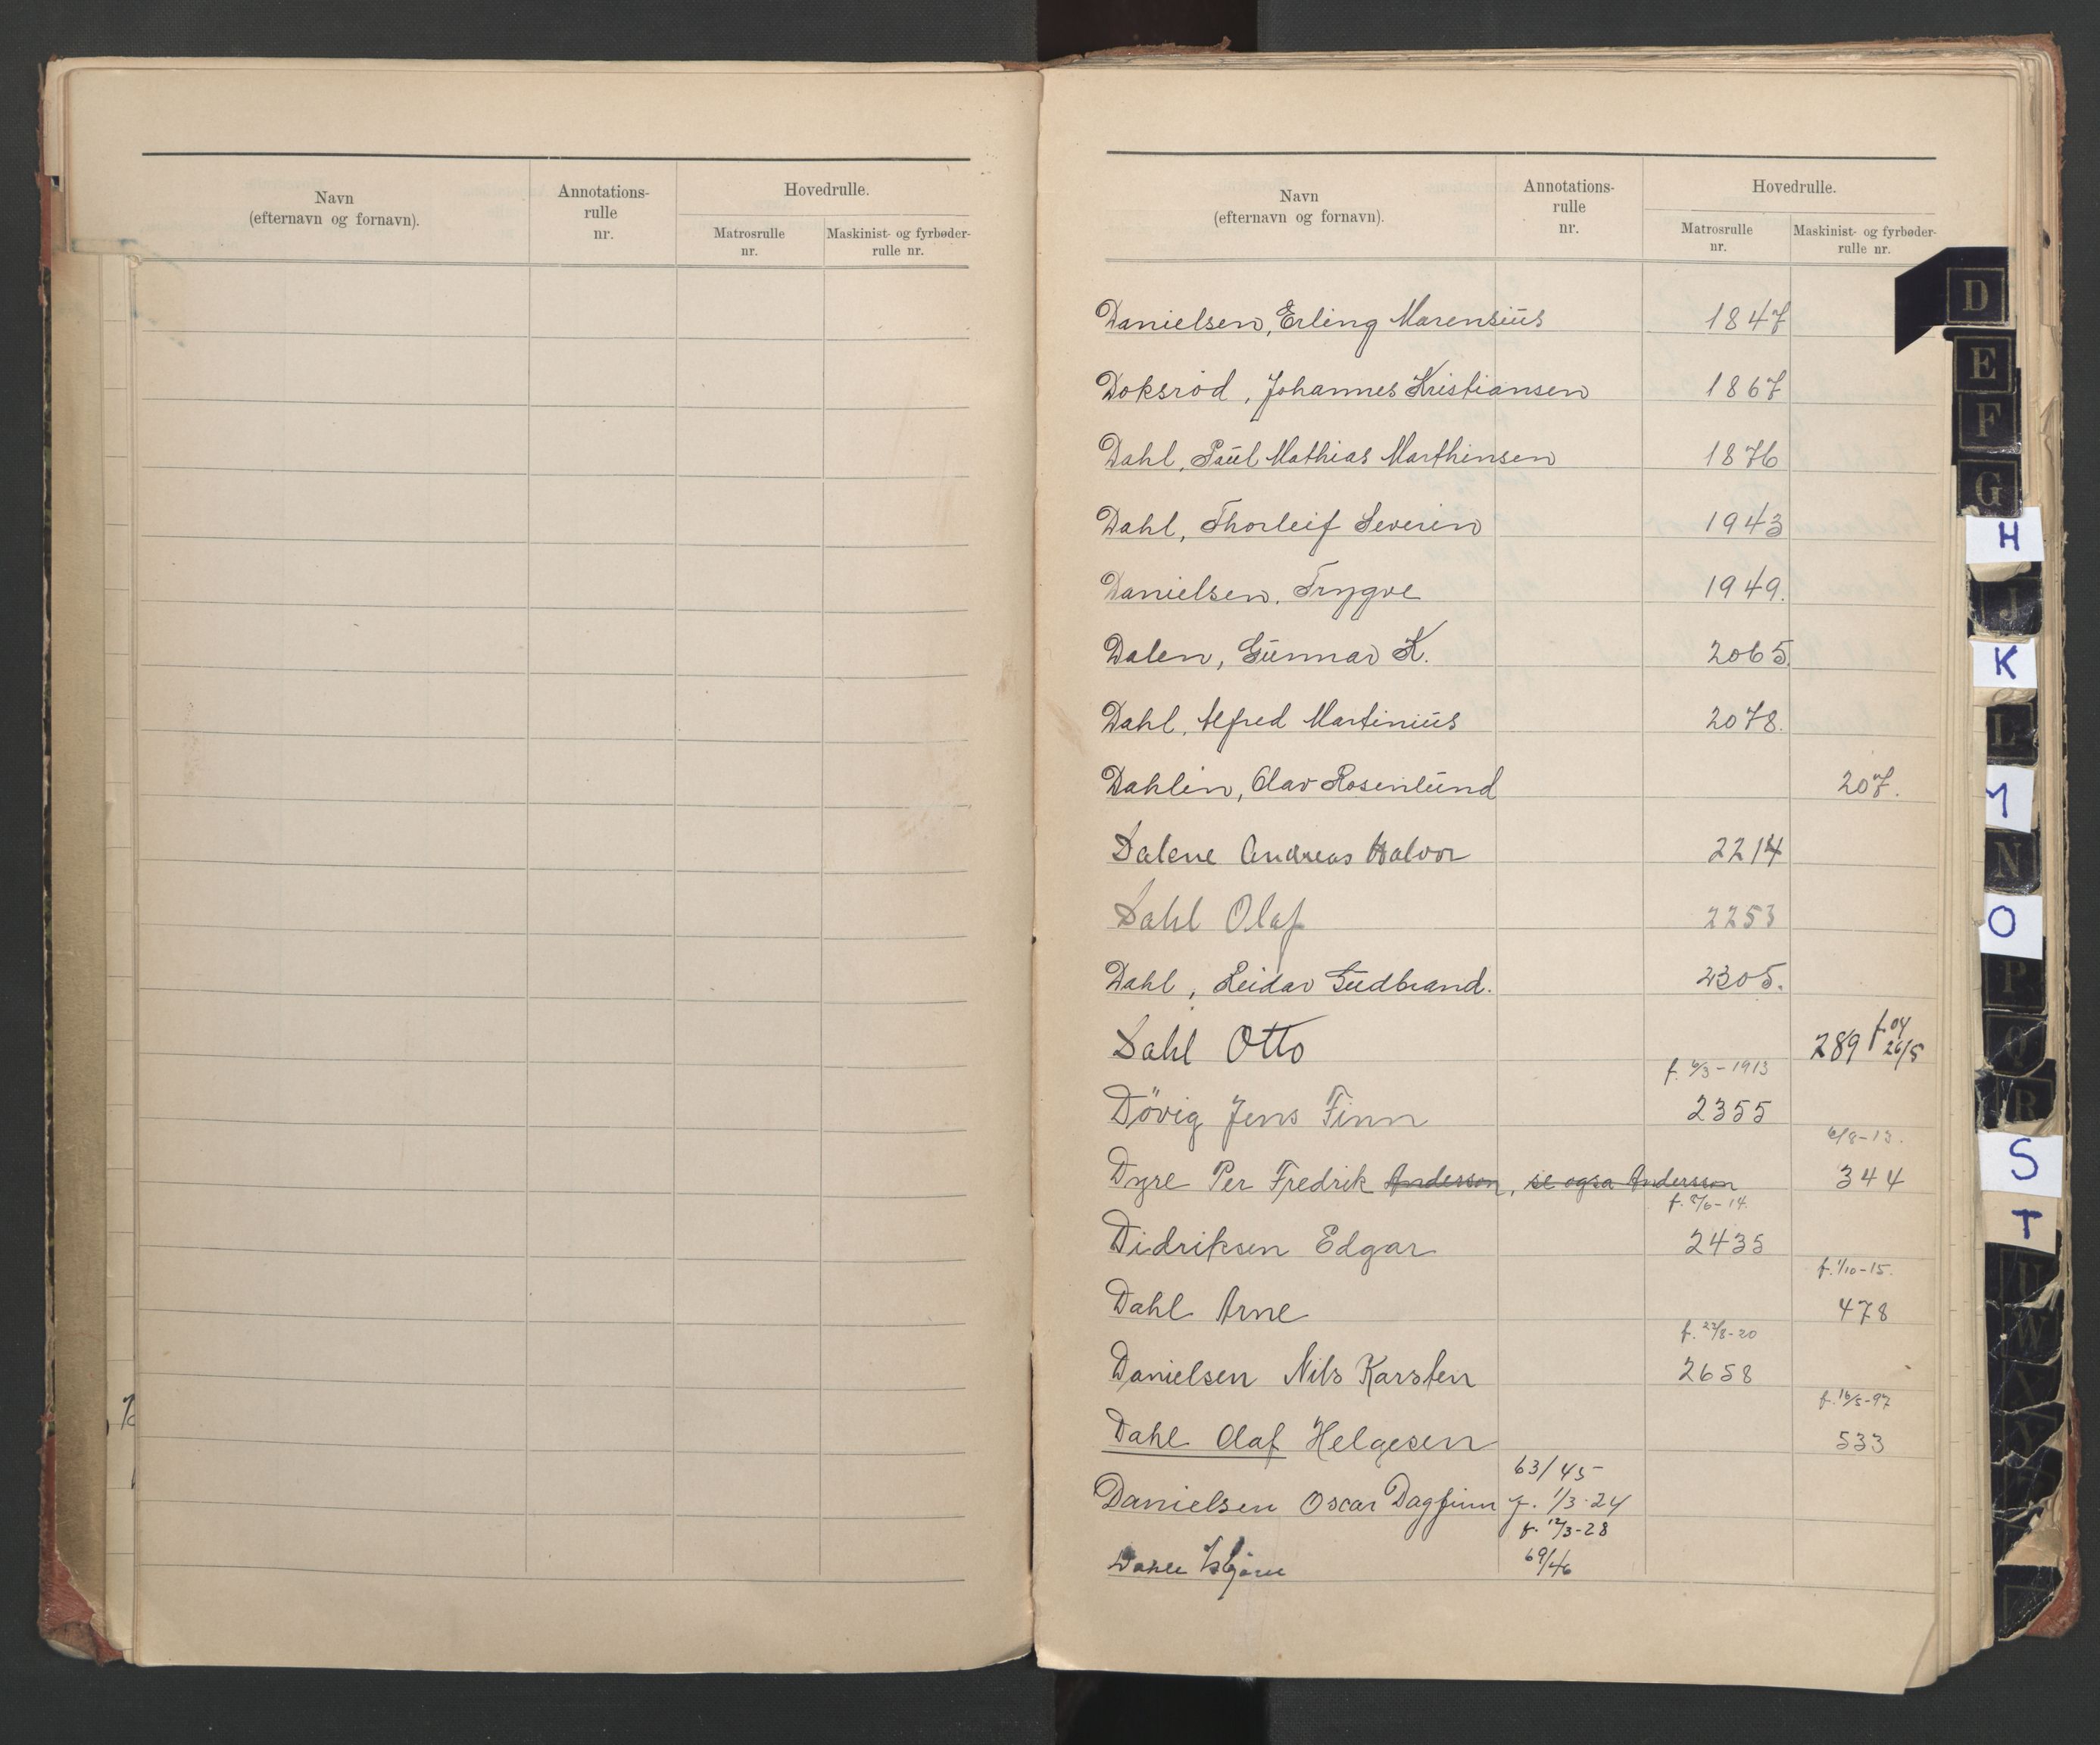 Navn
(efternavn og fornavn).
Annotations-
rulle
nr.
Hovedrulle.
Matrosrulle
nr.
Maskinist- og fyrbøder-
rulle nr.
Navn
(efternavn og fornavn).
Annotations-
rulle
nr.
Hovedrulle.
Matrosrulle
nr.
Maskinist- og fyrbøder-
rulle nr.
Danielsen, Erling Marensius 1847
Doksrød, Johannes Kristiansen 1867
Dahl, Paul Mathias Marthinsen 1876
Dahl, Thorleif Severin 1943
Danielsen, Trygve 1949.
Dalen, Gunnar K. 2065.
Dahl, Alfred Martinius 2078.
Dahlin, Olav Rosenlund 207.
Dalene Andreas Halvor 2214
Dahl Olaf 2253
Dahl, Reidar Gudbrand. 2305.
Dahl Otto 289 f. 04 26/5
f. 6/3-1913
Døvig Jens Finn 2355
6/8-13.
Dyre Per Fredrik Anderson, se også Andersson 344
f. 2/6-14.
Didriksen Edgar 2435
f. 1/10-15.
Dahl Arne 478
f. 22/8-20
Danielsen Nils Karsten 2658
f. 16/5-97
Dahl Olaf Helgesen 533
63/45
Danielsen Oscar Dagfinn f. 1/3-24
f. 12/3-28
69/46
D
E
F
G
H
J
K
L
M
N
O
P
Q
R
S
T
U
W